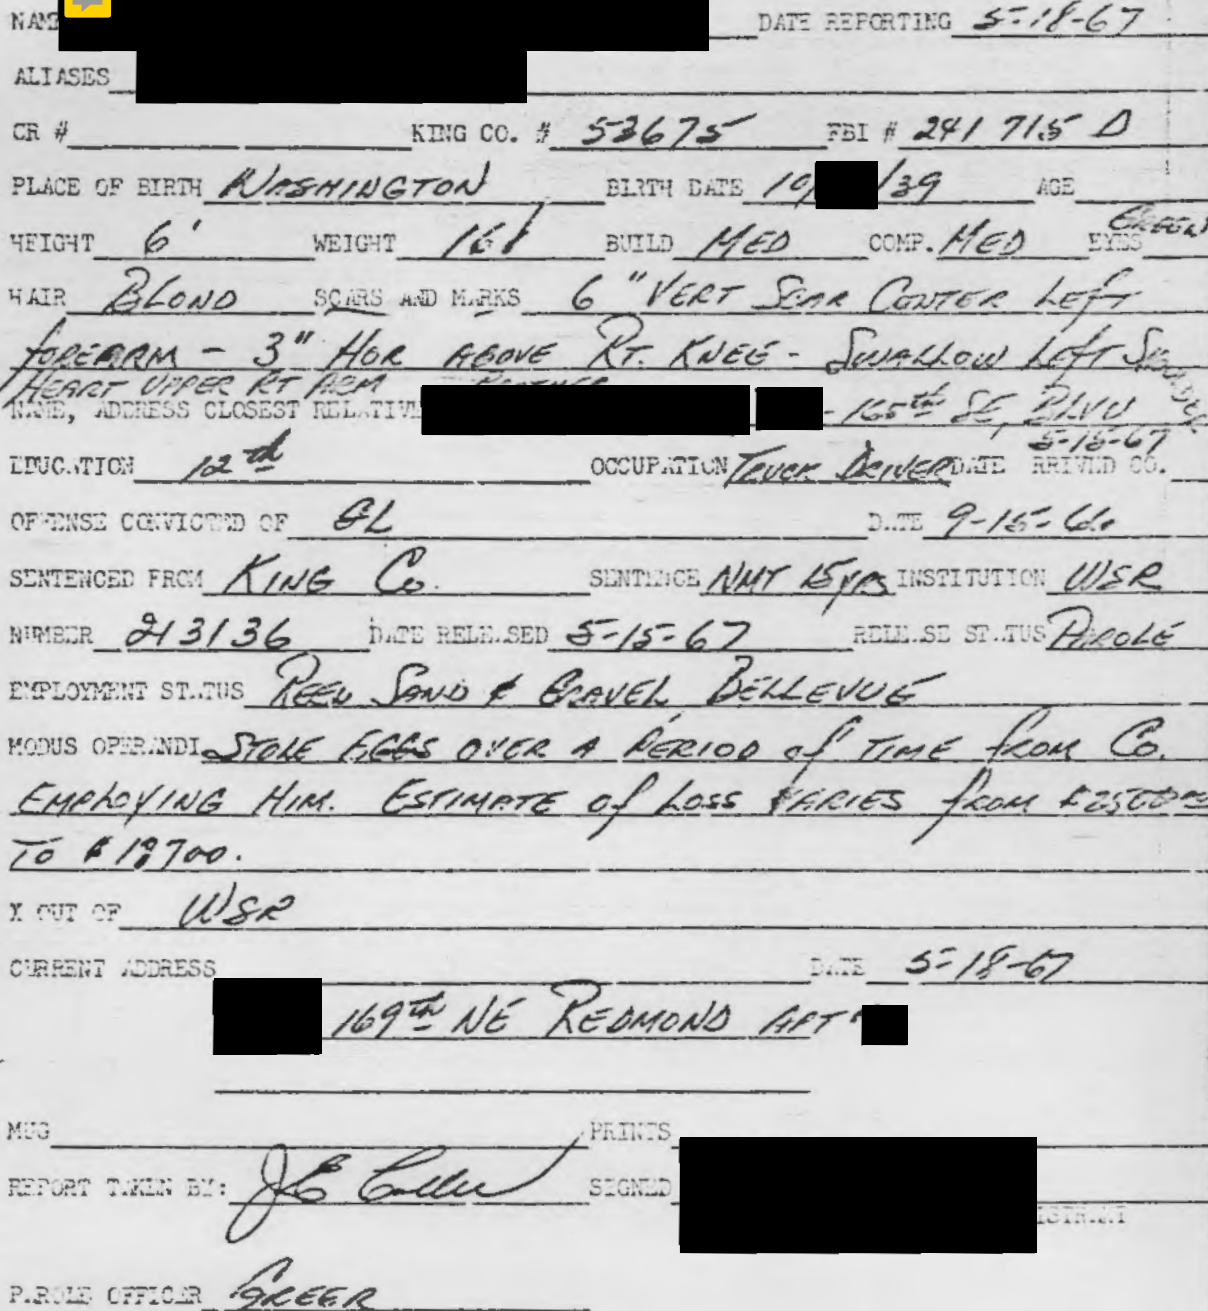 NAME DATE REPORTING 5-18-67
ALIASES
CR # KING CO. # 53675 FBI # 241 715 D
PLACE OF BIRTH WASHINGTON BIRTH DATE 10/ /39 AGE
HEIGHT 6' WEIGHT 161 BUILD MED COMP. MED EYES GREEN
HAIR BLOND SCARS AND MARKS 6" VERT SCAR CENTER LEFT
FOREARM - 3" HOR ABOVE RT. KNEE - SWALLOW LEFT SHOULDER
HEART UPPER RT ARM BROTHER
NAME, ADDRESS CLOSEST RELATIVE - 165th SE, BLVU
5-15-67
EDUCATION 12th OCCUPATION TRUCK DRIVER DATE ARRIVED CO.
OFFENSE CONVICTED OF GL DATE 9-15-66
SENTENCED FROM KING Co. SENTENCE NMT 15 yrs INSTITUTION WSR
NUMBER 213136 DATE RELEASED 5-15-67 RELEASE STATUS PAROLE
EMPLOYMENT STATUS REED SAND & GRAVEL BELLEVUE
MODUS OPERANDI STOLE EGGS OVER A PERIOD of TIME from Co.
EMPLOYING HIM. ESTIMATE of LOSS VARIES from $2500.00
TO $18700.
X OUT OF WSR
CURRENT ADDRESS DATE 5-18-67
169th NE REDMOND APT
MUG PRINTS
REPORT TAKEN BY: J E SIGNED
PAROLE OFFICER GREER